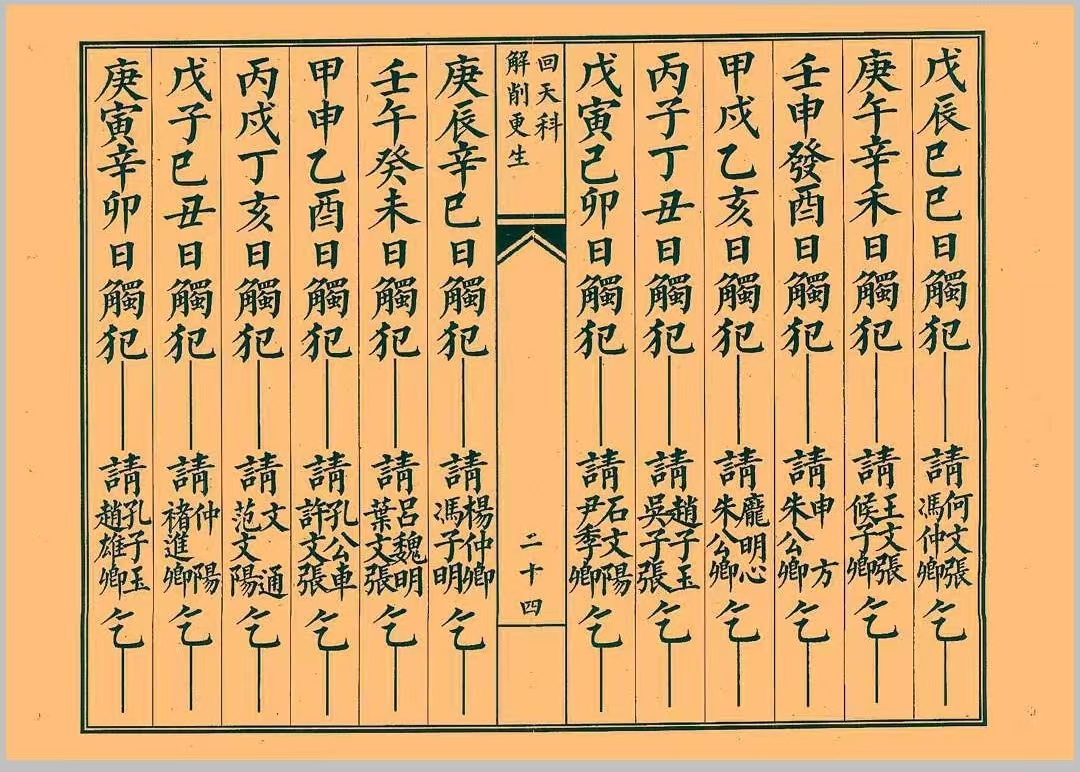 戊辰巳巳日觸犯 請何文張馮仲卿乞
庚午辛禾日觸犯 請王文張候子卿乞
壬申發酉日觸犯 請申方朱公卿乞
甲戍乙亥日觸犯 請龐明心朱公卿乞
丙子丁丑日觸犯 請趙子玉吳子張乞
戊寅己卯日觸犯 請石文陽尹季卿乞
回天科
解削更生
二十四
庚辰辛巳日觸犯 請楊仲卿馮子明乞
壬午癸未日觸犯 請呂魏明葉文張乞
甲申乙酉日觸犯 請孔公車許文張乞
丙戍丁亥日觸犯 請文通范文陽乞
戊子巳丑日觸犯 請仲陽褚進卿乞
庚寅辛卯日觸犯 請孔子玉趙雄卿乞